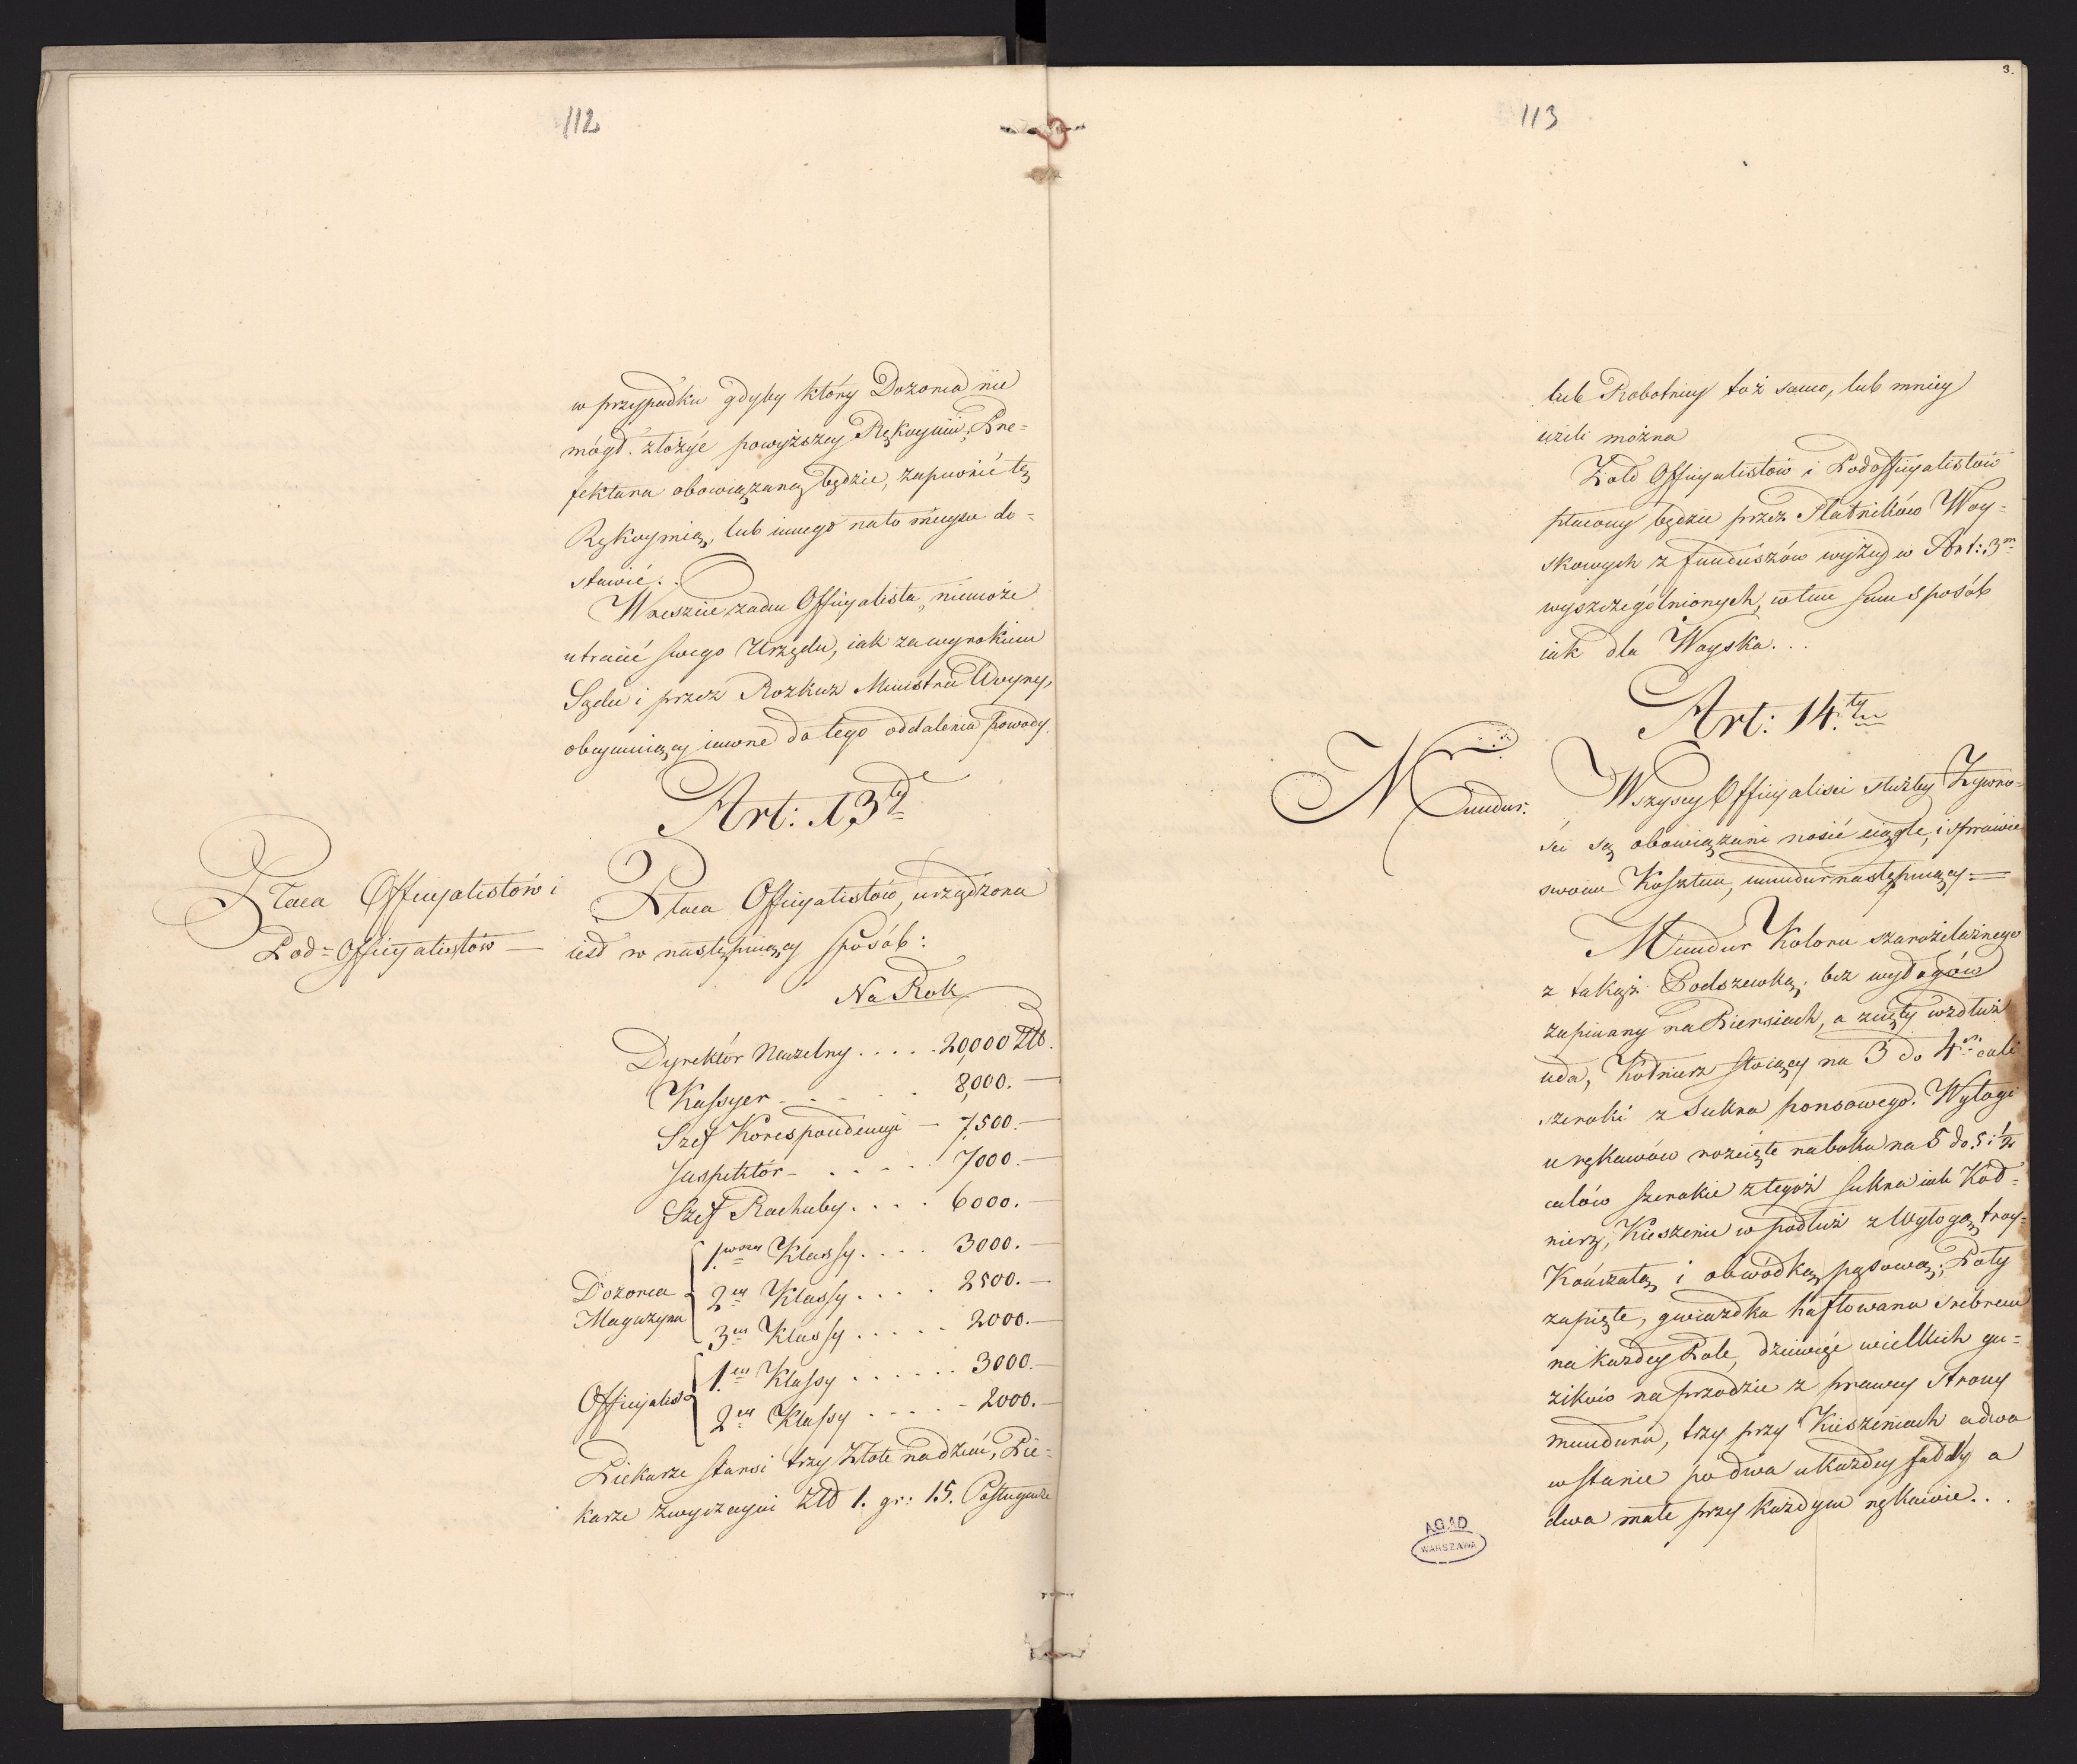 112
w przypadku gdyby który Dozorca nie
mógł złożyć powyższey Rękoymii, Pre=
fektura obowiązaną będzie, zapewnić tę
Rękoymią, lub innego na to mieysce do=
stawić..
Wreszcie żaden Officyalista, niemoże
utracić swego Urzędu, iak za wyrokiem
Sądu i przez Rozkaz Ministra Woyny,
obeymuiący iawne do tego oddalenia powody.
Art: 13ty
Płaca Officyalistów i
Pod=Officyalistów —
Płaca Officyalistów, urządzona
iest w następuiący sposób:
Na Rok
Dyrektór Naczelny..... 20,000 Złł.
Kassyer - - - - - 8,000. —
Szef Korespondencyi — 7,500. —
Inspektór - . . . . 7000. —
Szef Rachuby.... 6000. —
Dozorca
Magazynu
1wszey Klassy.... 3000. —
2ey Klassy.... 2500. —
3ey Klassy..... 2000. —
Officyalista
1ey Klassy...... 3000. —
2ey Klassy - - - - - 2000. —
Piekarze starsi trzy Złote na dzień, Pie=
karze zwyczayni Złł 1. gr: 15. Posługacze
113
3.
lub Robotnicy toż samo, lub mniey
ieżeli można
Żołd Officyalistów i Podofficyalistów
płacony będzie przez Płatników Woy=
skowych z funduszów wyżey w Art: 3m
wyszczególnionych, w ten sam sposób
iak dla Woyska...
Art: 14.ty
Mundur.
Wszyscy Officyalisci służby Żywno=
ści są obowiązani nosić ciągle, i sprawić
swoim Kosztem, mundur następuiący =
Mundur Koloru szaro żelaźnego
z takąż Podszewką, bez wyłogów
zapinany na Piersiach, a zcięty wzdłuż
uda, Kołnierz stoiący na 3 do 4ch cali
szeroki z Sukna ponsowego. Wyłogi
u rękawów rozcięte na boku na 5 do 5 i ½
calów szerokie z tegoż sukna iak Koł=
nierz, Kieszenie w podłuż z Wyłogą troy=
kończatą i obwódką pąsową; Poły
zapięte, gwiazdka haftowana srebrem
na każdey Pole, dziewięć wielkich gu=
zików na przodzie z prawey strony
munduru, trzy przy Kieszeniach a dwa
w stanie po dwa u każdey fałdy a
dwa małe przy każdym rękawie...
AGAD
WARSZAWA